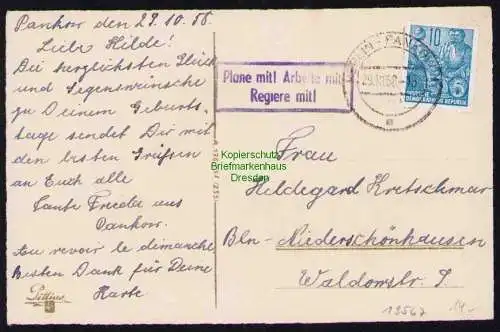 Pankow den 29.10.58.
Liebe Hilde!
Die herzlichsten Glück
und Segenswünsche
zu Deinem Geburts-
tage sendet Dir mit
den besten Grüßen
an Euch alle
Tante Frieda aus
Pankow.
Au revoir le dimanche
Besten Dank für Deine
Karte
Plane mit! Arbeite mit!
Regiere mit!
PANKOW
29.10.58
a
10
DEMOKRATISCHE REPUBLIK
Kopierschutz
Briefmarkenhaus
Dresden
Frau
Hildegard Kretschmar
Bln-Niederschönhausen
Waldowstr. 9
13567
14.-